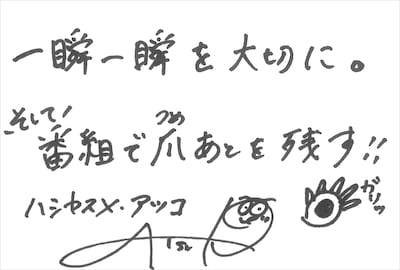 一瞬一瞬を大切に。
そして!
つめ
番組で爪あとを残す!!
ハシヤスメ・アツコ
ガリッ